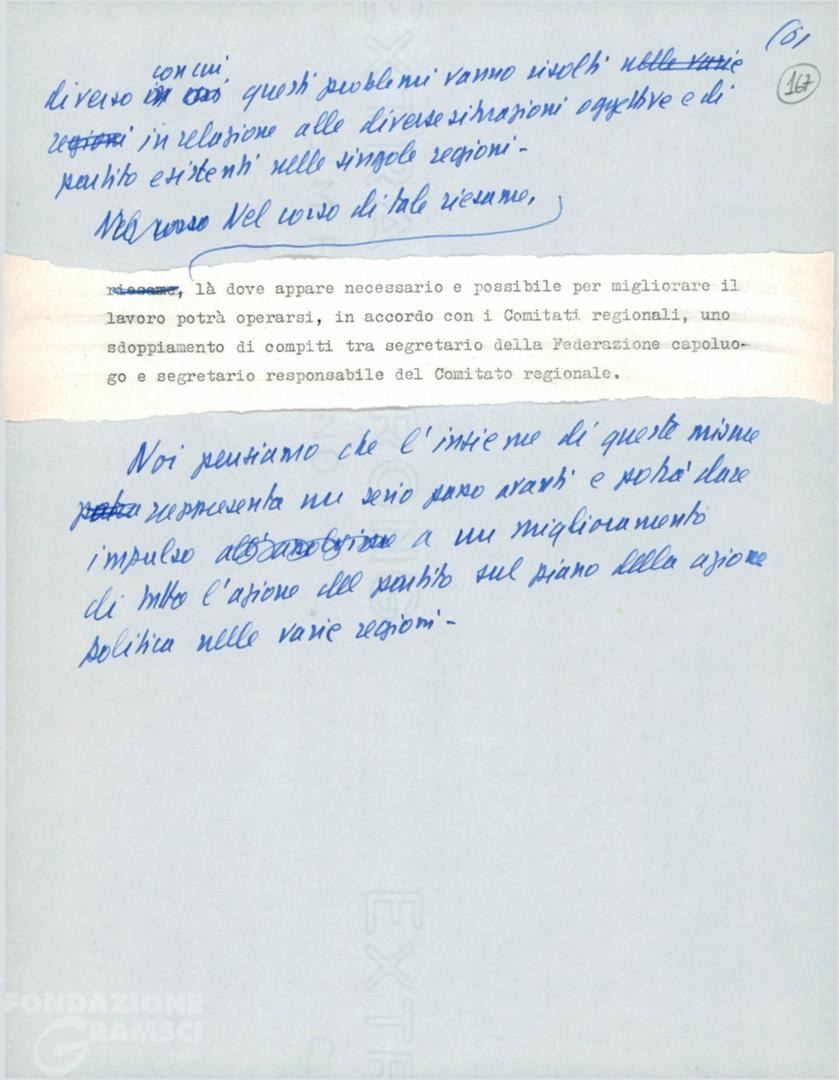 (6)
167
con cui
diverso in cui questi problemi vanno risolti nelle varie
regioni in relazione alle diverse situazioni oggettive e di
partito esistenti nelle singole regioni -
Nel corso Nel corso di tale riesame,
riesame, là dove appare necessario e possibile per migliorare il
lavoro potrà operarsi, in accordo con i Comitati regionali, uno
sdoppiamento di compiti tra segretario della Federazione capoluo-
go e segretario responsabile del Comitato regionale.
Noi pensiamo che l'insieme di queste misure
potrà rappresenta un serio passo avanti e potrà dare
impulso a un miglioramento
di tutta l'azione del partito sul piano della azione
politica nelle varie regioni -
EXTRA
STRONG
EXTR
FONDAZIONE
GRAMSCI